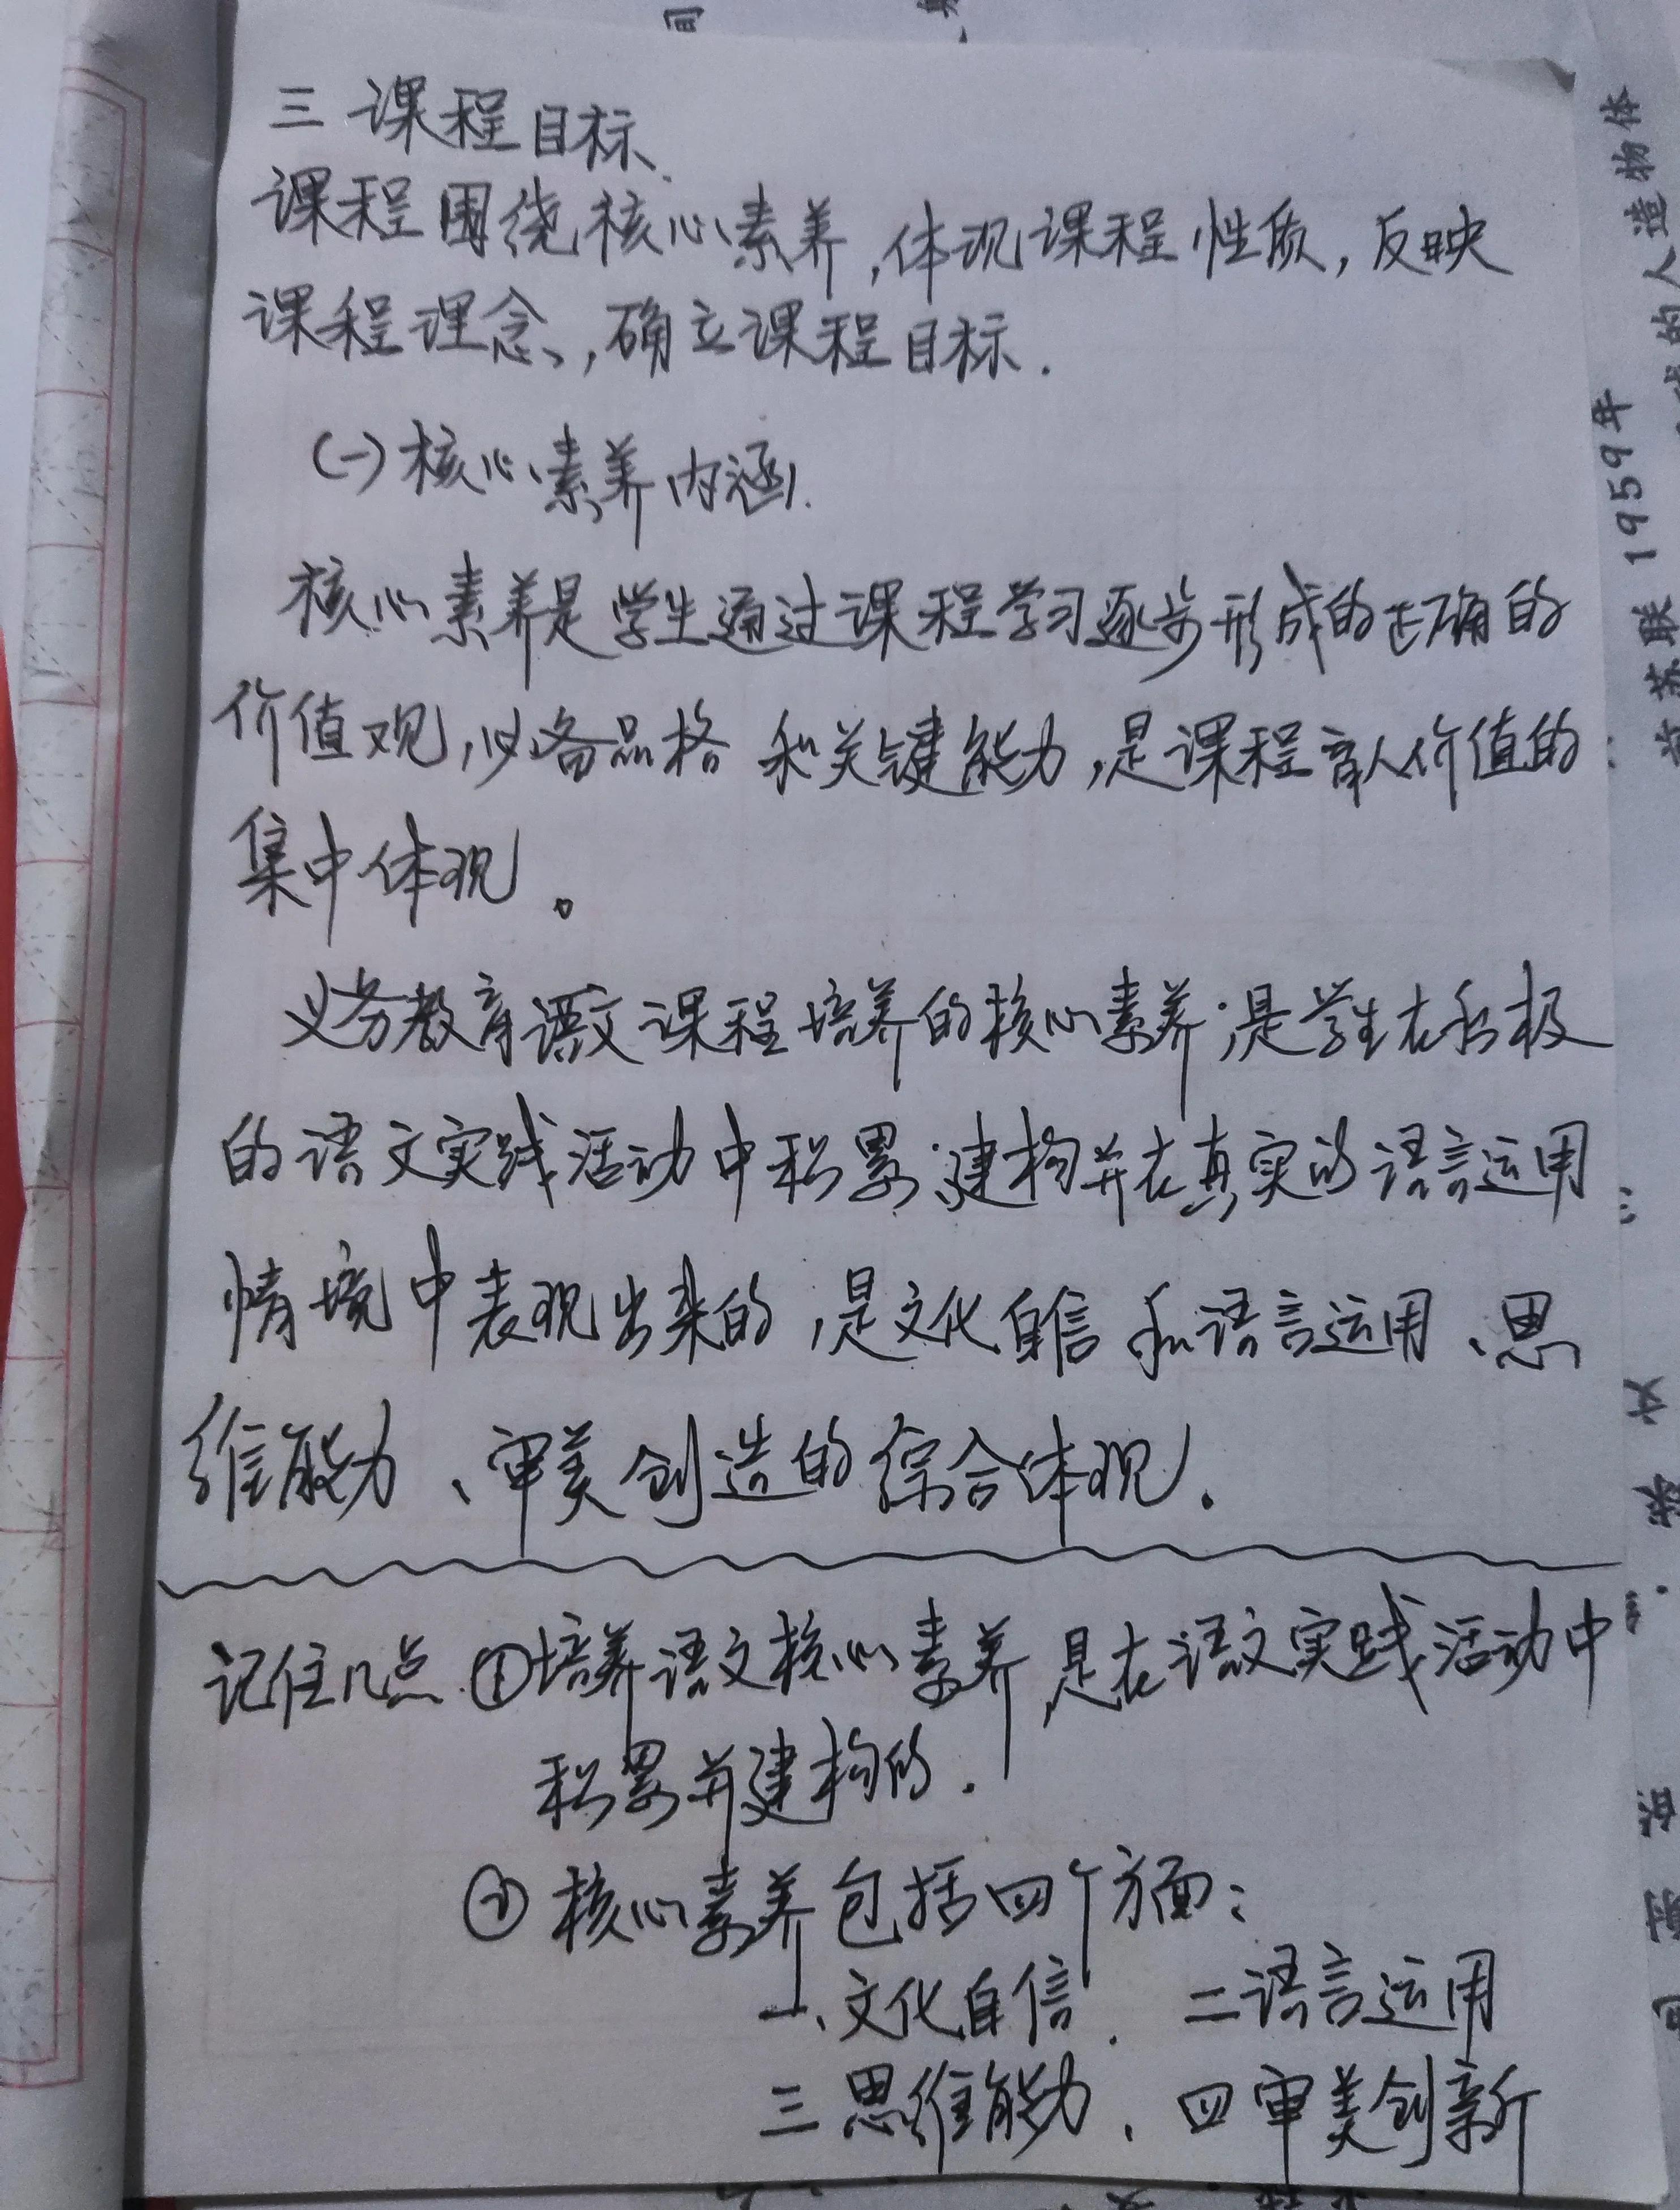 三 课程目标
课程围绕核心素养,体现课程性质,反映
课程理念,确立课程目标.
(一)核心素养内涵.
核心素养是学生通过课程学习逐步形成的正确的
价值观,必备品格 和关键能力,是课程育人价值的
集中体现。
义务教育语文课程培养的核心素养,是学生在积极
的语文实践活动中积累、建构并在真实的语言运用
情境中表现出来的,是文化自信 和语言运用、思
维能力、审美创造的综合体现.
记住几点 ①培养语文核心素养,是在语文实践活动中
积累并建构的.
② 核心素养包括四个方面:
一、文化自信. 二语言运用
三 思维能力、四审美创新
人造物体
苏联 1959年